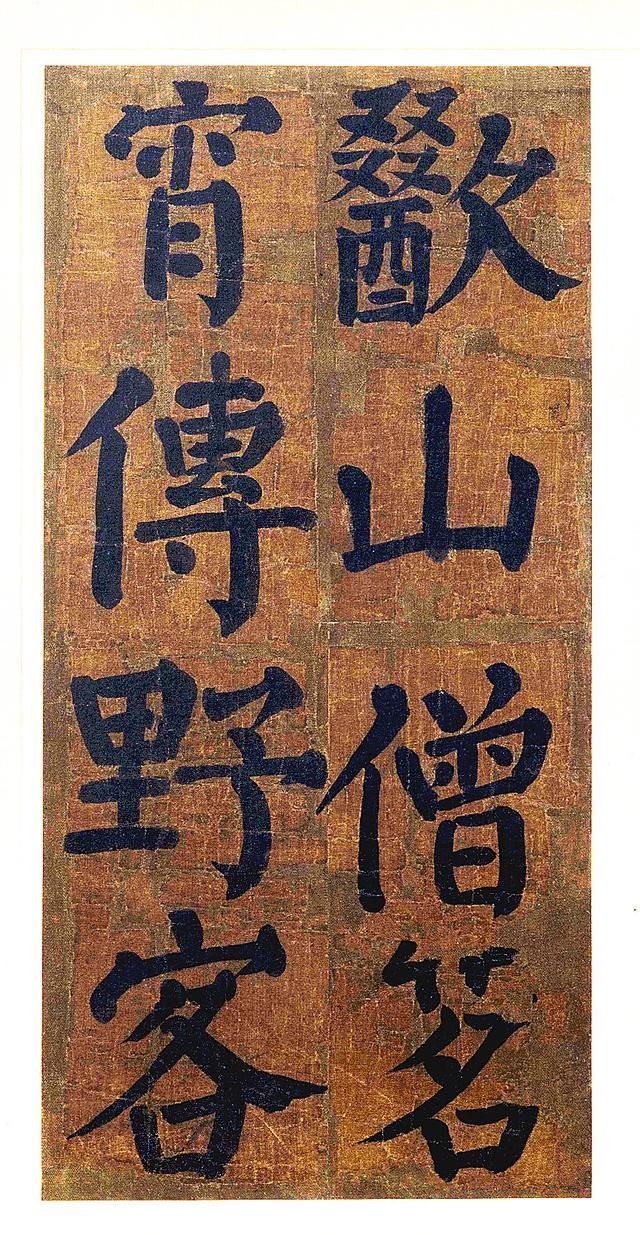 歠山僧茗
宵傳野客